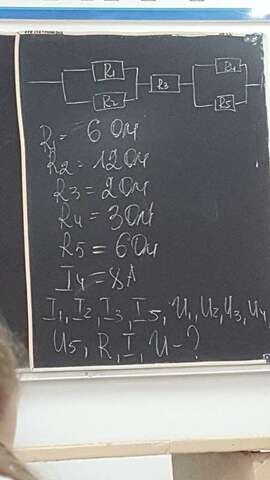 R1
R4
R3
R2
R5
R1 = 6 Ом
R2 = 12 Ом
R3 = 2 Ом
R4 = 3 Ом
R5 = 6 Ом
I4 = 8 А
I1, I2, I3, I5, U1, U2, U3, U4
U5, R, I, U - ?